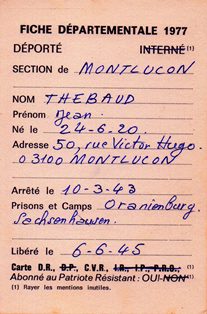 FICHE DÉPARTEMENTALE 1977
DÉPORTÉ INTERNÉ (1)
SECTION de MONTLUCON
NOM THEBAUD
Prénom Jean.
Né le 24-6-20.
Adresse 50, rue Victor Hugo.
03100 MONTLUCON
Arrêté le 10-3-43
Prisons et Camps Oranienburg.
Sachsenhausen.
Libéré le 6-6-45
Carte D.R., D.P., C.V.R., I.R., I.P., P.R.O., (1)
Abonné au Patriote Résistant : OUI-NON (1)
(1) Rayer les mentions inutiles.